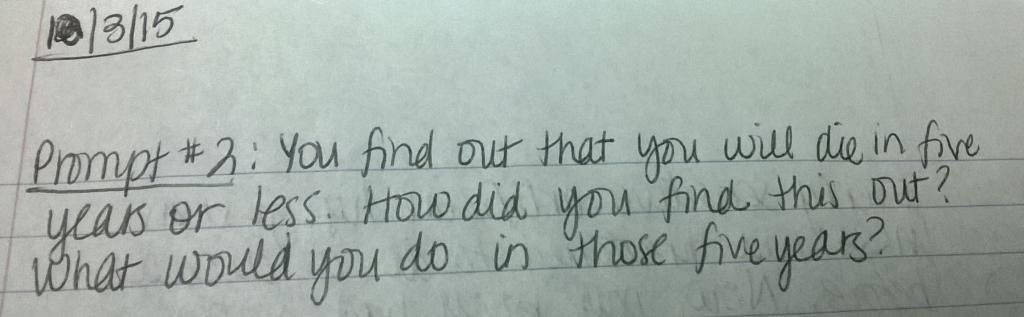 10/3/15
Prompt #2: You find out that you will die in five
years or less. How did you find this out?
What would you do in those five years?